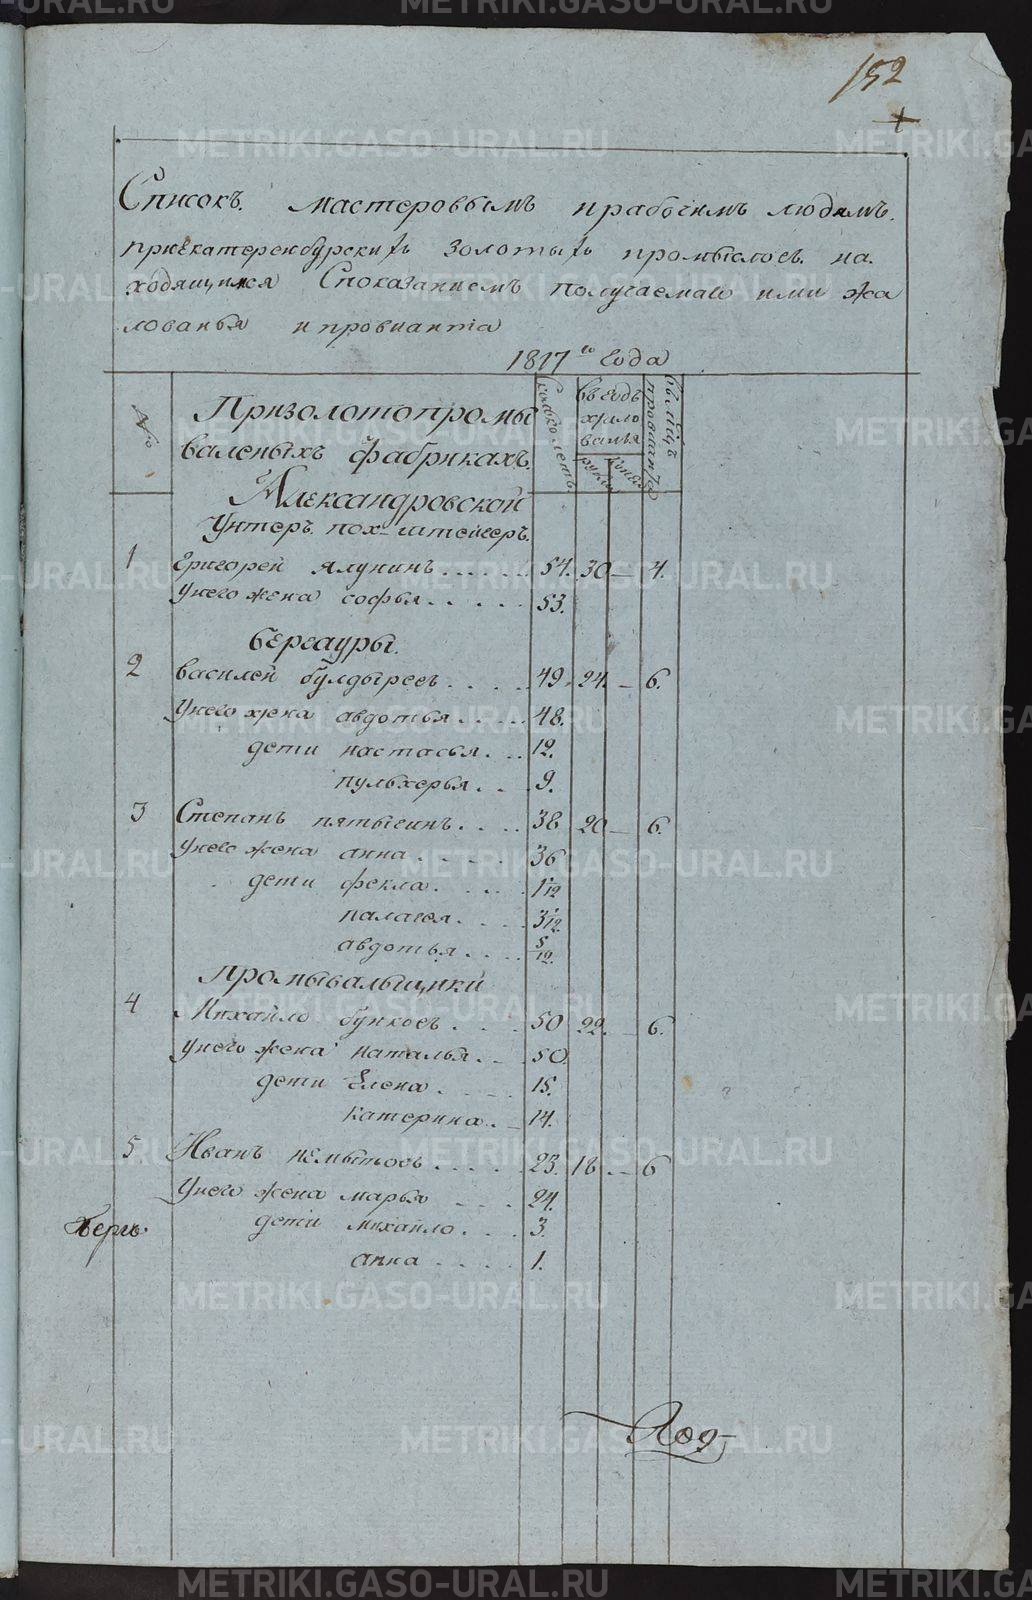 152
Списокъ. мастеровымъ ирабочимъ людямъ.
приекатеренбурскихъ золотыхъ промыслостъ. на.
ходящимся Споказаниемъ получаемаго ими жа
лованья ипровианта
1817го года
№
Призолотопромы
валеныхъ фабрикахъ.
сколко летъ.
вгодъ
жало
ванья
рубли
копей
вмцъ
провианта
Александровской
Унтеръ. пох-штейгеръ.
1 Григорей ялунинъ...... 54. 30 — 4.
Унего жена софья..... 53.
бергауры.
2 василей булдыревъ.... 49. 24. — 6.
Унего жена авдотья.... 48.
дети настасья... 12.
пульхерья.. 9.
3 Степанъ пятыгинъ.... 38 20 — 6.
Унего жена анна..... 36
дети фекла..... 1 1/12
палагея.... 3 1/12.
авдотья.... 5/12.
промывальщики
4 Михайло бунковъ.... 50 22. — 6.
Унего жена наталья... 50.
дети Елена.... 15.
катерина.. 14.
5. Иванъ немытовъ..... 23. 18 — 6
Унего жена марья ... 24.
Бергъ.
дети михайло.... 3.
анна..... 1.